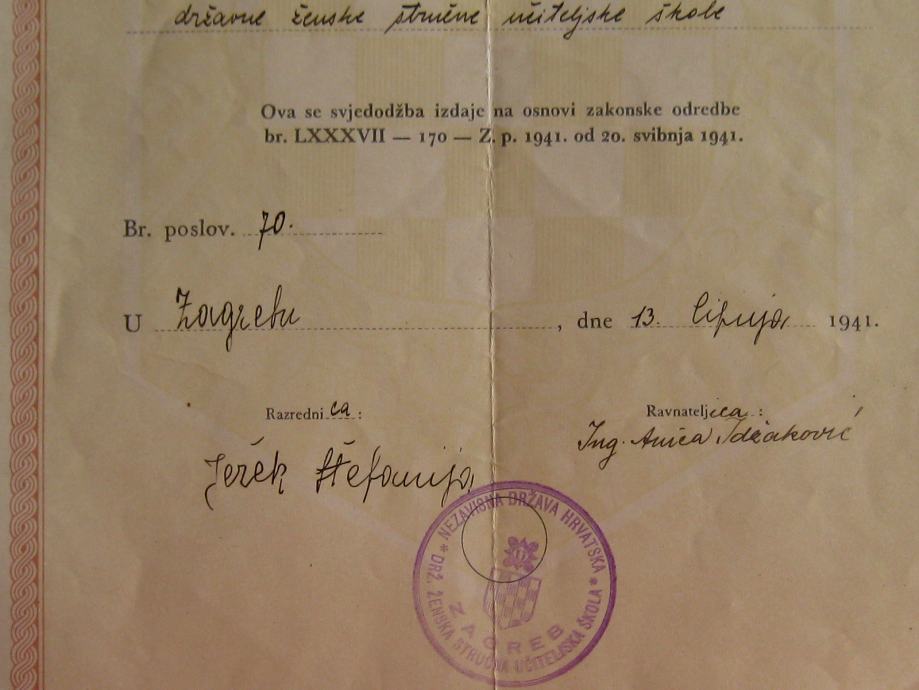 državne ženske stručne učiteljske škole
Ova se svjedodžba izdaje na osnovi zakonske odredbe
br. LXXXVII — 170 — Z. p. 1941. od 20. svibnja 1941.
Br. poslov. 70.
U Zagrebu, dne 13. lipnja 1941.
Razrednica: Ravnateljica:
Jerék Štefanija Ing. Anica
* NEZAVISNA DRŽAVA HRVATSKA *
DRŽ. ŽENSKA STRUČNA UČITELJSKA ŠKOLA
ZAGREB